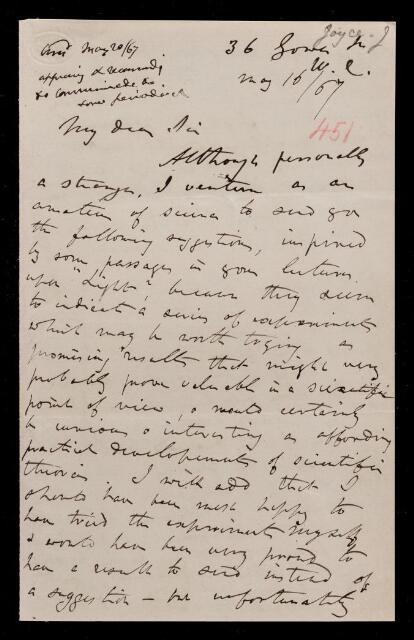 Joyce. J
Ansd May 20/67
approving & recommending
to communicate to
some periodical
36 Gower St
W. C.
May 15/67
451
My dear Sir
Although personally
a stranger, I venture as an
amateur of science to send you
the following suggestions, inspired
by some passages in your lectures
upon "Light", because they seem
to indicate a series of experiments
which may be worth trying as
promising results that might very
probably prove valuable in a scientific
point of view, & would certainly
be curious & interesting as affording
practical developements of scientific
theories. I will add that I
should have been most happy to
have tried the experiments myself,
& would have been very proud to
have a result to send instead of
a suggestion – but unfortunately